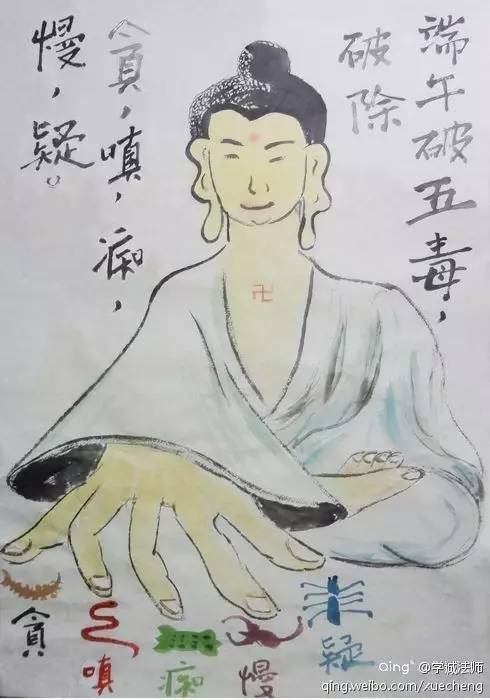 端午破五毒，
破除
貪，嗔，痴，
慢，疑。
卍
貪
嗔
痴
慢
疑
Qing @学诚法师
qingweibo.com/xuecheng